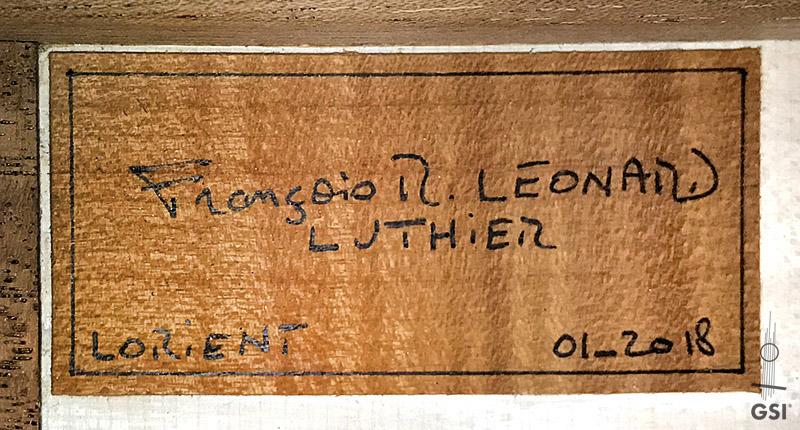 François R. LÉONARD
LUTHiER
LORiENT
01_2018
GSI